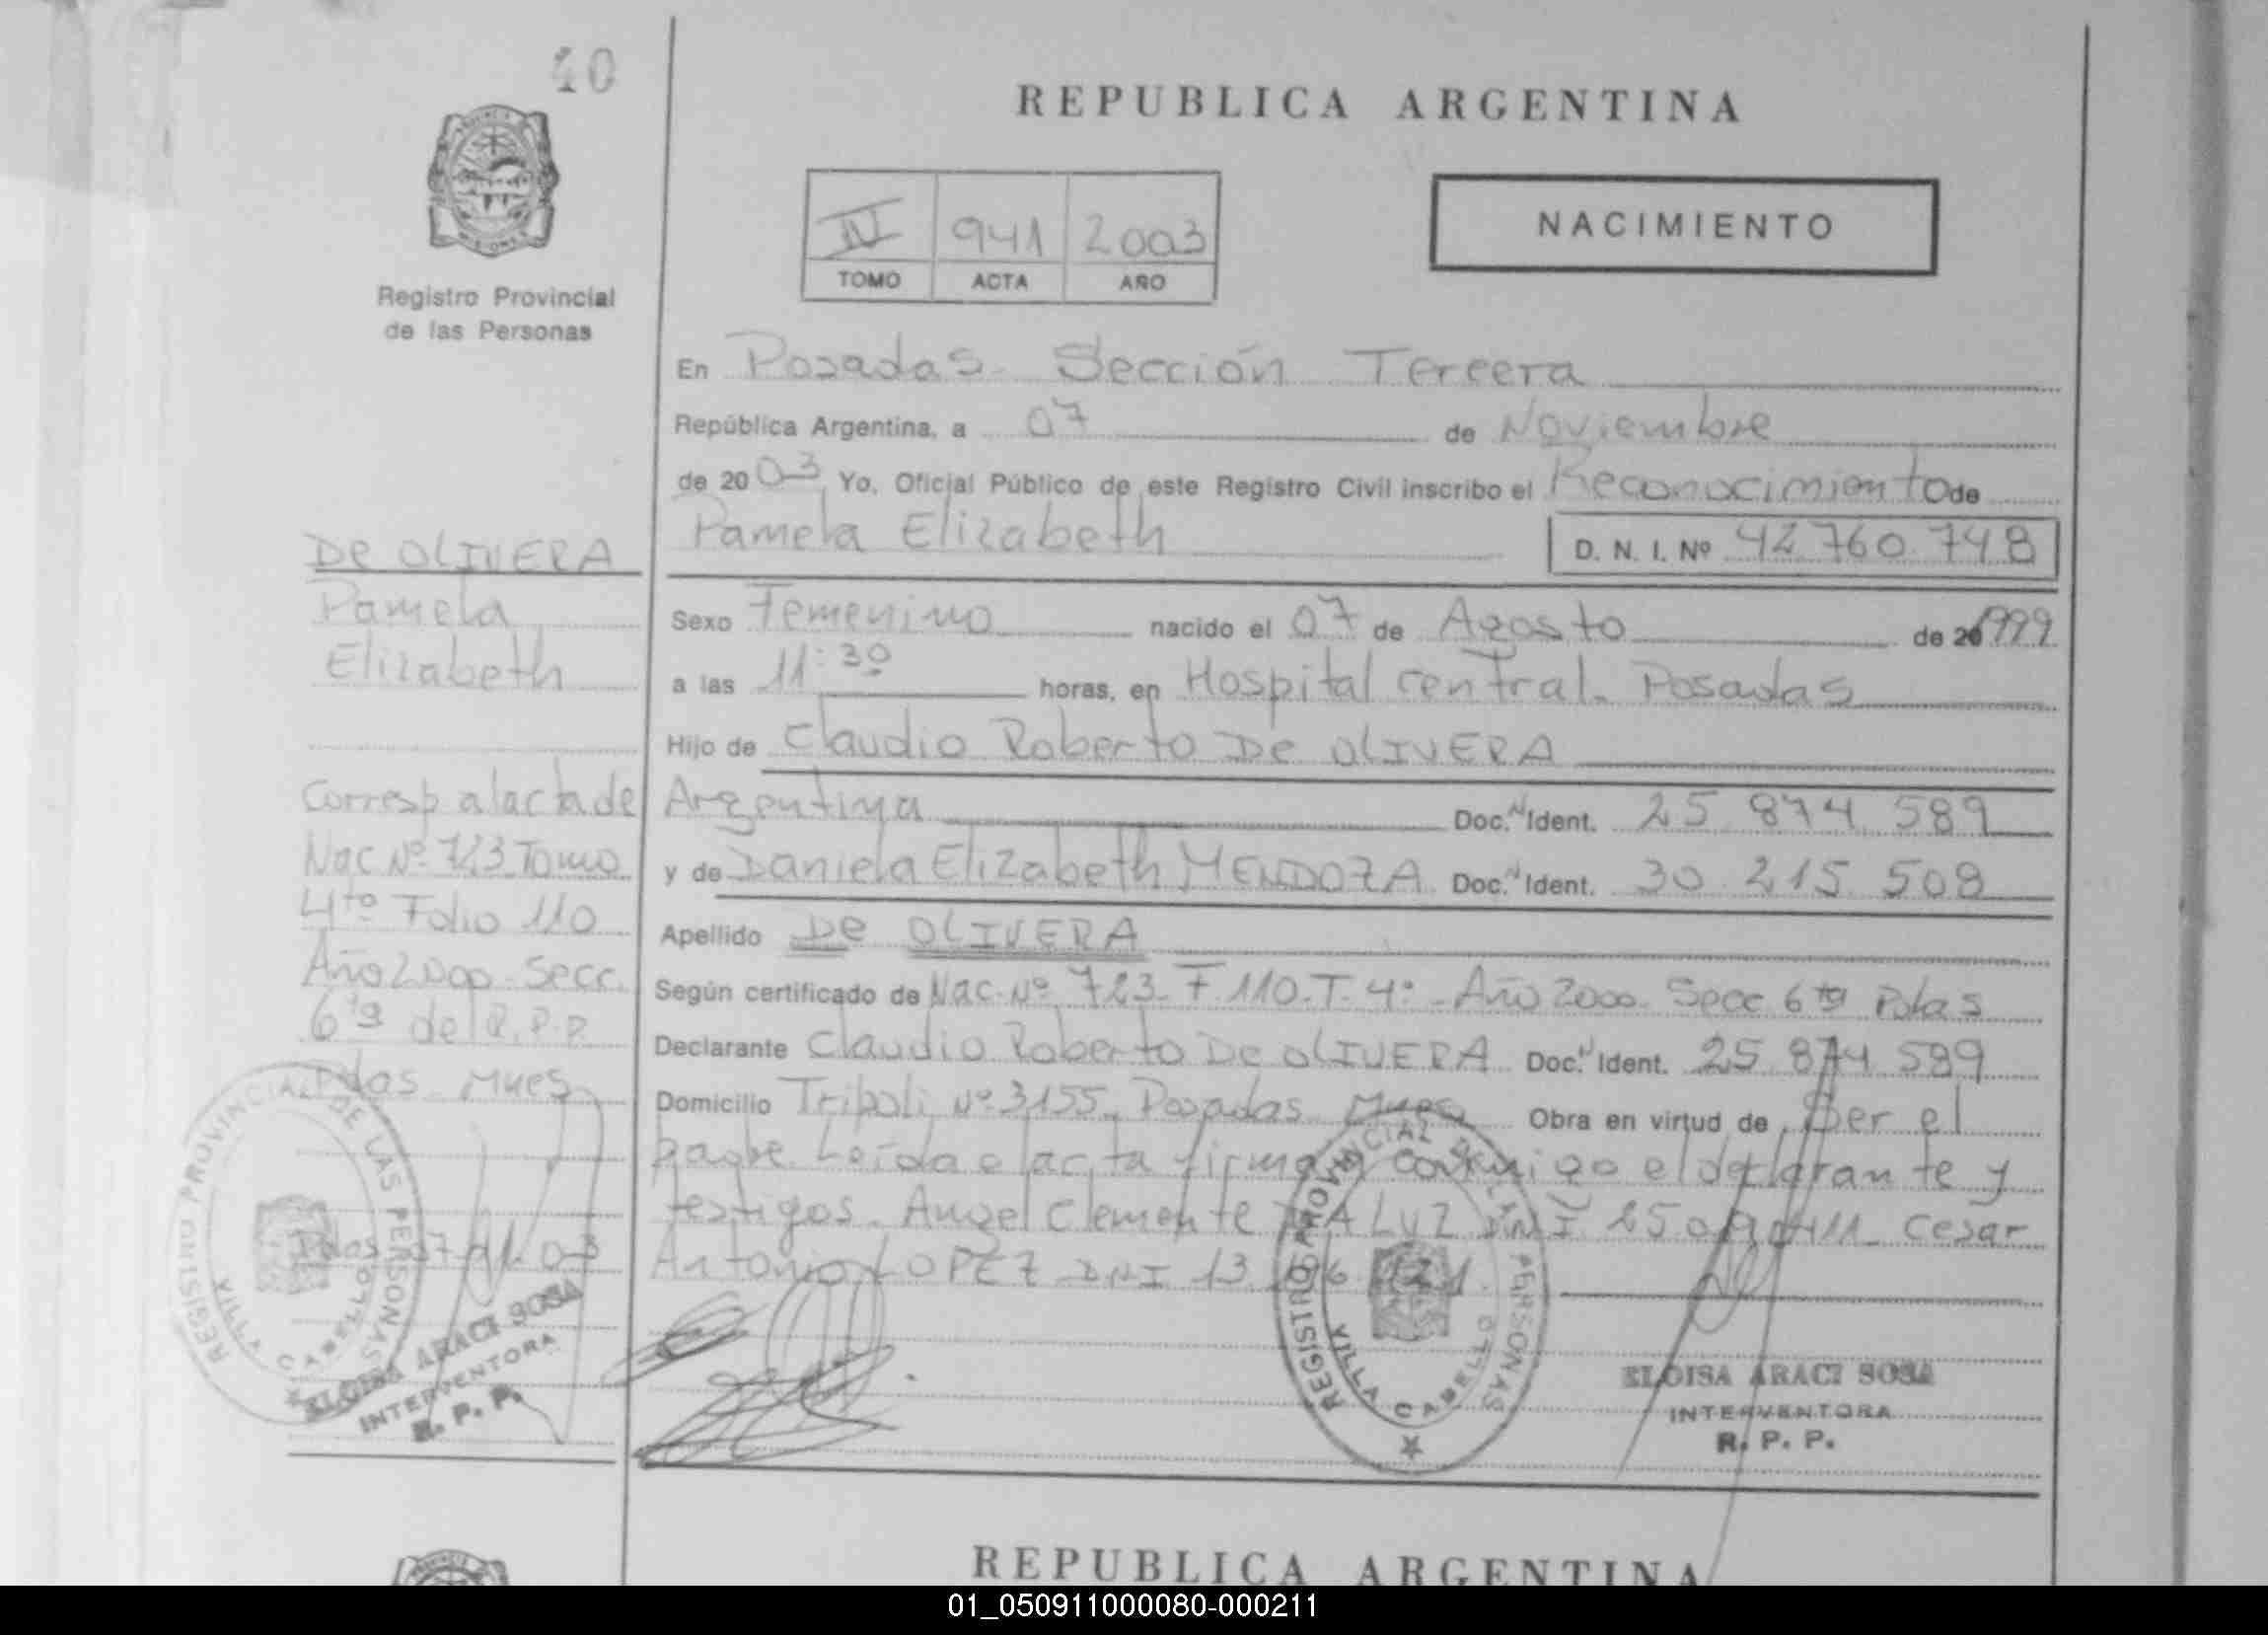 40
REPUBLICA ARGENTINA
IV 941 2003
TOMO ACTA AÑO
NACIMIENTO
Registro Provincial
de las Personas
En Posadas Sección Tercera
República Argentina, a 07 de Noviembre
de 2003 Yo, Oficial Público de este Registro Civil inscribo el Reconocimiento de
Pamela Elizabeth D. N. I. Nº 42.760.748
Sexo Femenino nacido el 07 de Agosto de 1999
a las 11:30 horas, en Hospital central. Posadas
Hijo de Claudio Roberto De OLIVERA
Argentina Doc. N Ident. 25 874 589
y de Daniela Elizabeth MENDOZA Doc. N Ident. 30 215 508
Apellido De OLIVERA
Según certificado de Nac. Nº 723 F. 110. T. 4º - Año 2000. Secc 6ta Pdas
Declarante Claudio Roberto De OLIVERA Doc. N Ident. 25 874 589
Domicilio Tripoli Nº 3155 Posadas Mnes Obra en virtud de Ser el
padre. Leída el acta firman conmigo el declarante y
testigos. Angel Clemente DNI 25 Cesar
Antonio LOPEZ DNI 13
De OLIVERA
Pamela
Elizabeth
Corresp al acta de
Nac Nº 723 Tomo
4to Folio 110
Año 2000 - Secc.
6ta del R.P.P.
Pdas Mnes
Pdas 07 11 03
REGISTRO PROVINCIAL DE LAS PERSONAS
VILLA CABELLO
ELOISA ARACI SOSA
INTERVENTORA
R. P. P.
REGISTRO PROVINCIAL DE LAS PERSONAS
VILLA CABELLO
ELOISA ARACI SOSA
INTERVENTORA
R. P. P.
REPUBLICA ARGENTINA
01_050911000080-000211